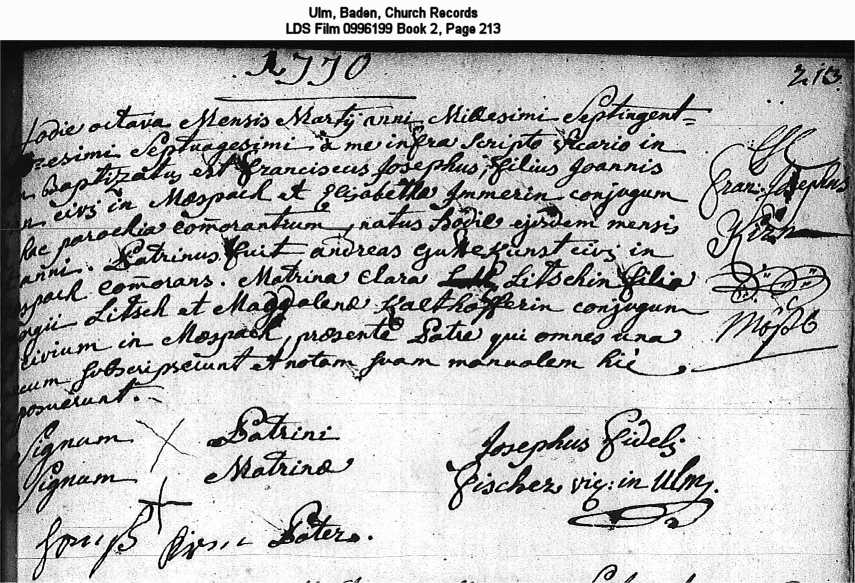 Ulm, Baden, Church Records
LDS Film 0996199 Book 2, Page 213
1770
213.
hodie octava Mensis Martij anni Millesimi Septingent=
esimi Septuagesimi à me infra Scripto Vicario in
Baptizatus est Franciscus Josephus, filius Joannis
civis in Mœspach et Elisabethæ Immerin conjugum
hac parochia com̄orantium, natus hodie ejusdem mensis
anni. Patrinus fuit andreas Guttekunst civis in
spach com̄orans. Matrina Clara Litschin filia
orgii Litsch et Magdalenæ Kalthöfferin conjugum
civium in Mœspach, præsente Patre qui omnes una
cum subscripserunt et notam suam manualem hic
posuerunt.
Fran: Josephus
Kirn
Mösb
Signum Patrini
Signum Matrinæ
Josephus Fidelis
Fischer vic: in Ulm.
Pater.